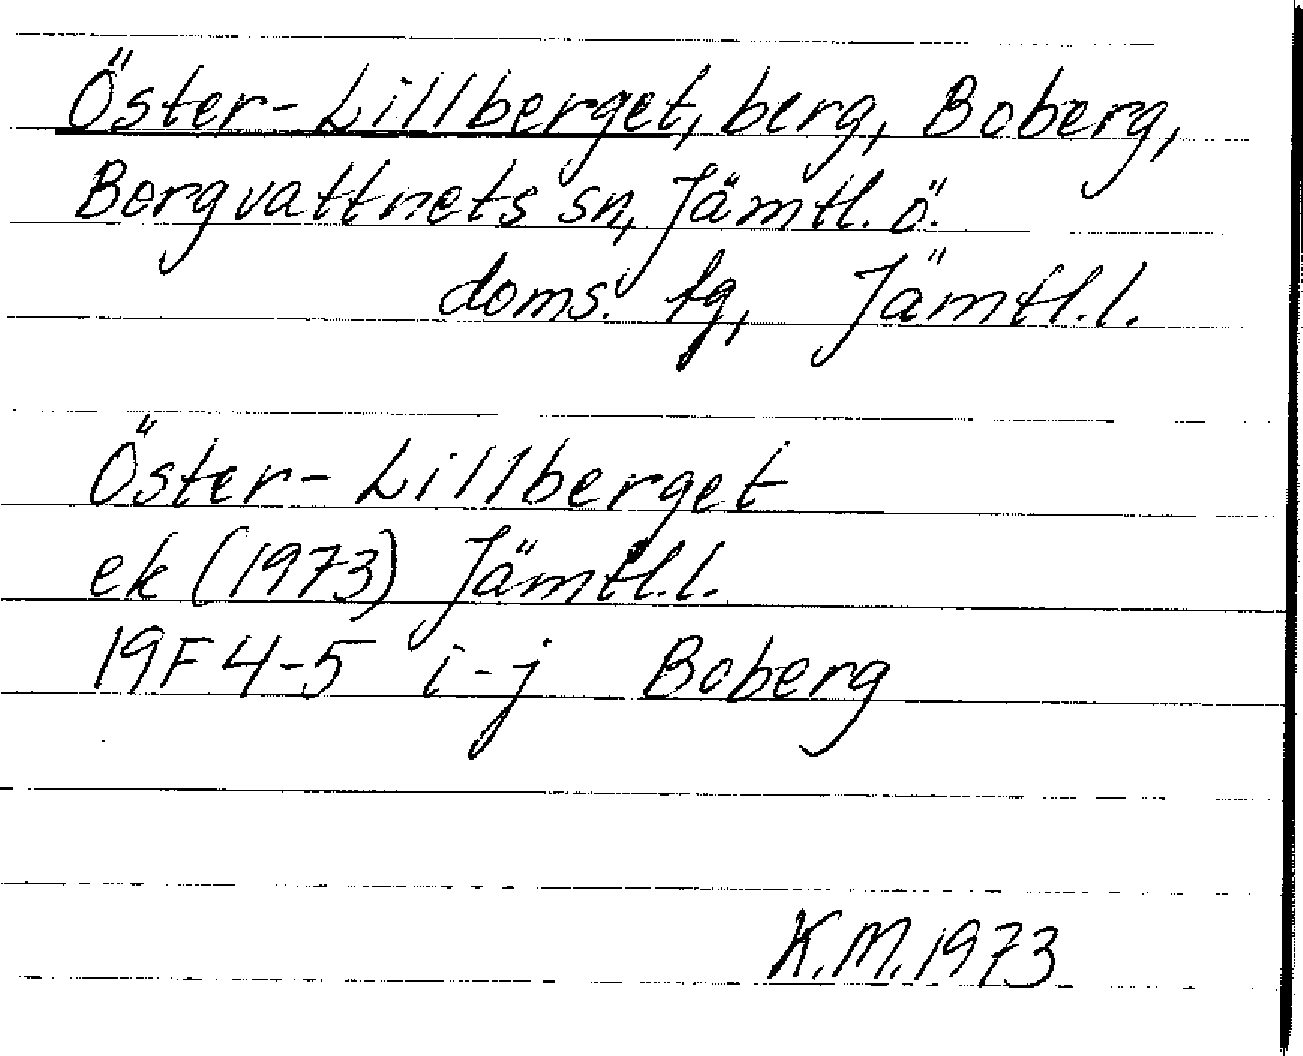 Öster-Lillberget, berg, Boberg,
Borgvattnets sn, Jämtl. ö.
doms. tg, Jämtl.l.
Öster-Lillberget
ek (1973) Jämtl.l.
19F 4-5 i-j Boberg
K.M.1973